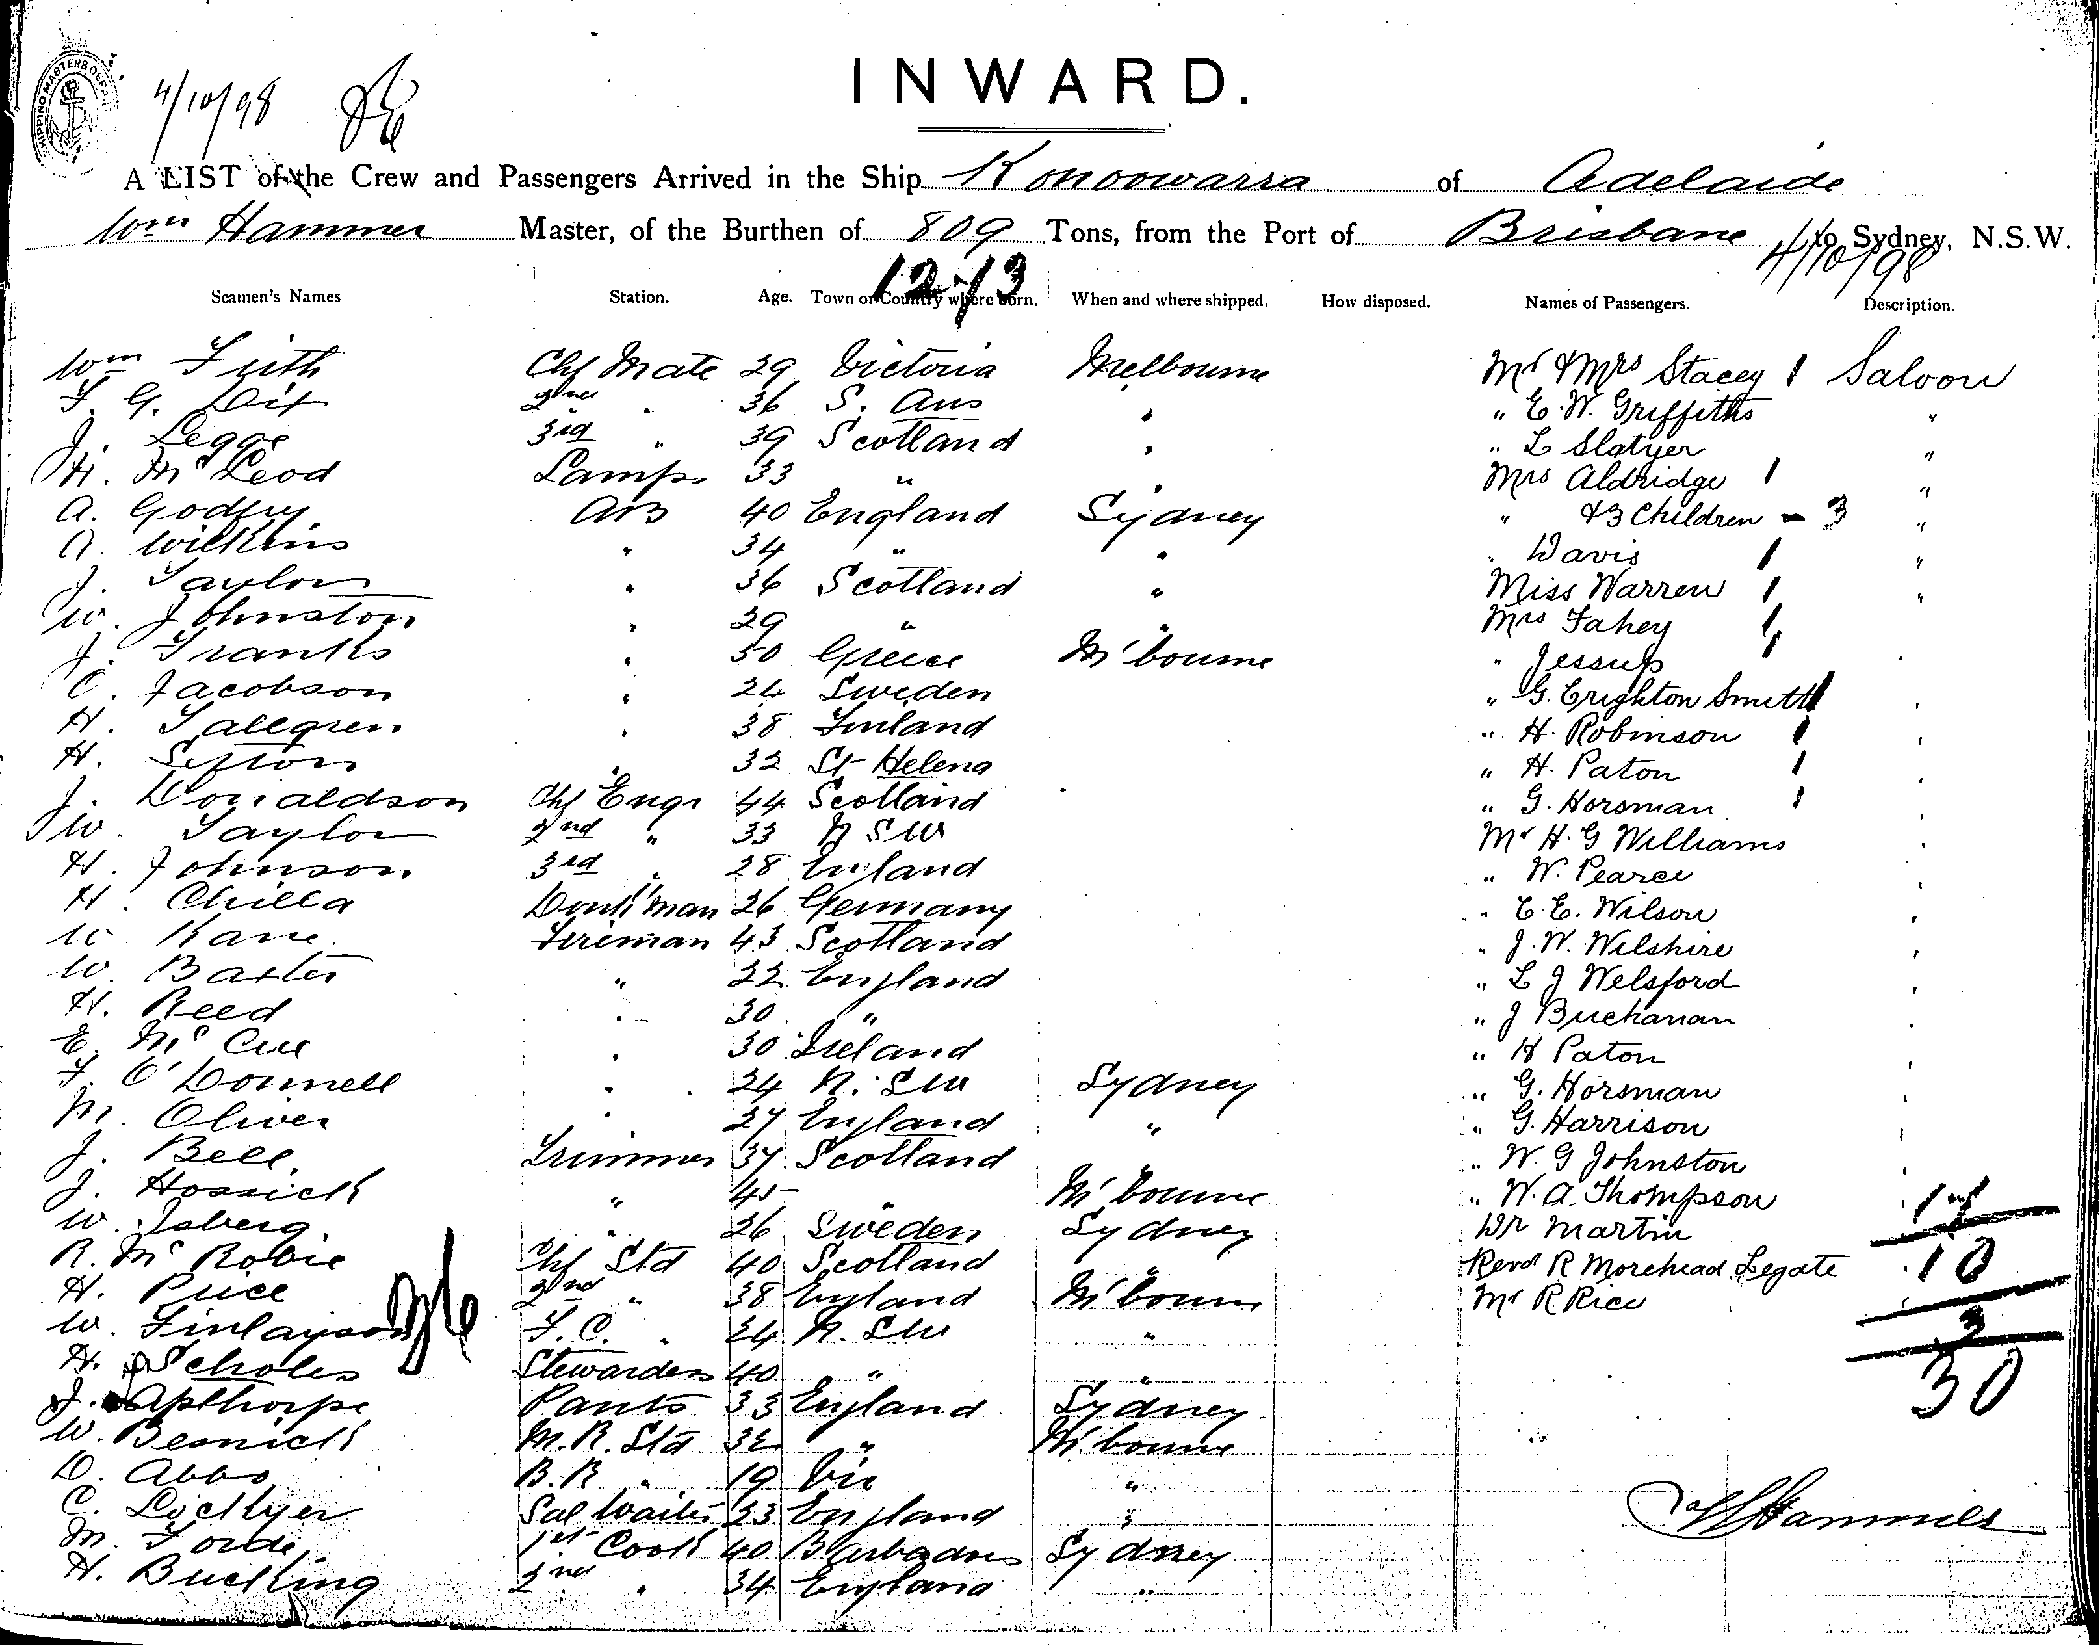 SHIPPING MASTERS DEPT
4/10/98
INWARD.
A LIST of the Crew and Passengers Arrived in the Ship Konoowarra of Adelaide
Wm Hammer Master, of the Burthen of 809 Tons, from the Port of Brisbane to Sydney, N.S.W.
4/10/98
12/13
Seamen's Names Station. Age. Town or Country where born. When and where shipped. How disposed. Names of Passengers. Description.
Wm Firth Chf Mate 29 Victoria Melbourne Mr & Mrs Stacey 1 Saloon
F. G. Dix 2nd " 36 S. Aus " " E. W. Griffiths "
J. Legge 3rd " 39 Scotland " " L Slatyer "
H. McLeod Lamps 33 " " Mrs Aldridge 1 "
A. Godfry AB 40 England Sydney " & 3 Children - 3 "
A. Wilkins " 34 " " " Davis 1 "
J. Taylor " 36 Scotland " Miss Warren 1 "
W. Johnston " 29 " " Mrs Fahey 1
J. Franks " 30 Greece M'bourne " Jessup 1 "
C. Jacobson " 24 Sweden " G. Crighton Smith 1 "
H. Tallgren " 38 Finland " H. Robinson 1 "
H. Sefton " 32 St Helena " H. Paton 1 "
J. Donaldson Chf Engr 44 Scotland " G. Horsman 1 "
W. Taylor 2nd " 33 N SW Mr H. G Williams "
H. Johnson 3rd " 28 England " W. Pearce "
H. Chilla Donk'man 26 Germany " E. E. Wilson "
W Kane Fireman 43 Scotland " J. W. Wilshire "
W. Baxter " 22 England " L J Welsford "
H. Reed " 30 " " J Buchanan "
E. McCue " 30 Ireland " H Paton "
F. O'Donnell " 24 N. SW Sydney " G. Horsman "
M. Oliver " 27 England " " G. Harrison "
J. Bell Trimmer 37 Scotland " W. G Johnston "
J. Hossick " 45 M'bourne " W. A. Thompson "
W. Isberg " 26 Sweden Sydney Dr Martin 17
R. McRobie Chf Std 40 Scotland " Revd R Morehead Legate 10
H. Price 2nd " 38 England M'bourne Mr R Rice
W. Finlayson F. C. " 24 N. SW " 3
H. Scholes Stewardess 40 " " 30
J. Apthorpe Pants 33 England Sydney
W. Besnick M. R. Std 32 " M'bourne
D. Abbs B. R " 19 Vic "
C. Sal Waiter 23 England "
M. Forde 1st Cook 40 Barbadoes Sydney
H. Buckling 2nd " 34 England "
Wm Hammer